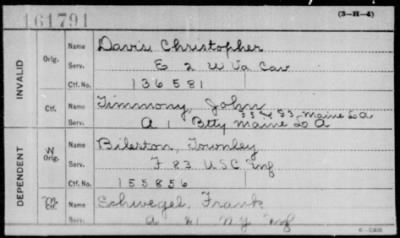 161791
(3-H-4)
INVALID
Orig.
Name Davis Christopher
Serv. E 2 W Va Cav
Ctf. No. 136581
Ctf.
Name Timmony, John
Serv. A 1 Btty Maine L A
DEPENDENT
W
Orig.
Name Bilerton, Townley
Serv. F 83 USC Inf
Ctf. No. 155856
Ctf.
Name Schwegel, Frank
Serv. A 81 NY Inf